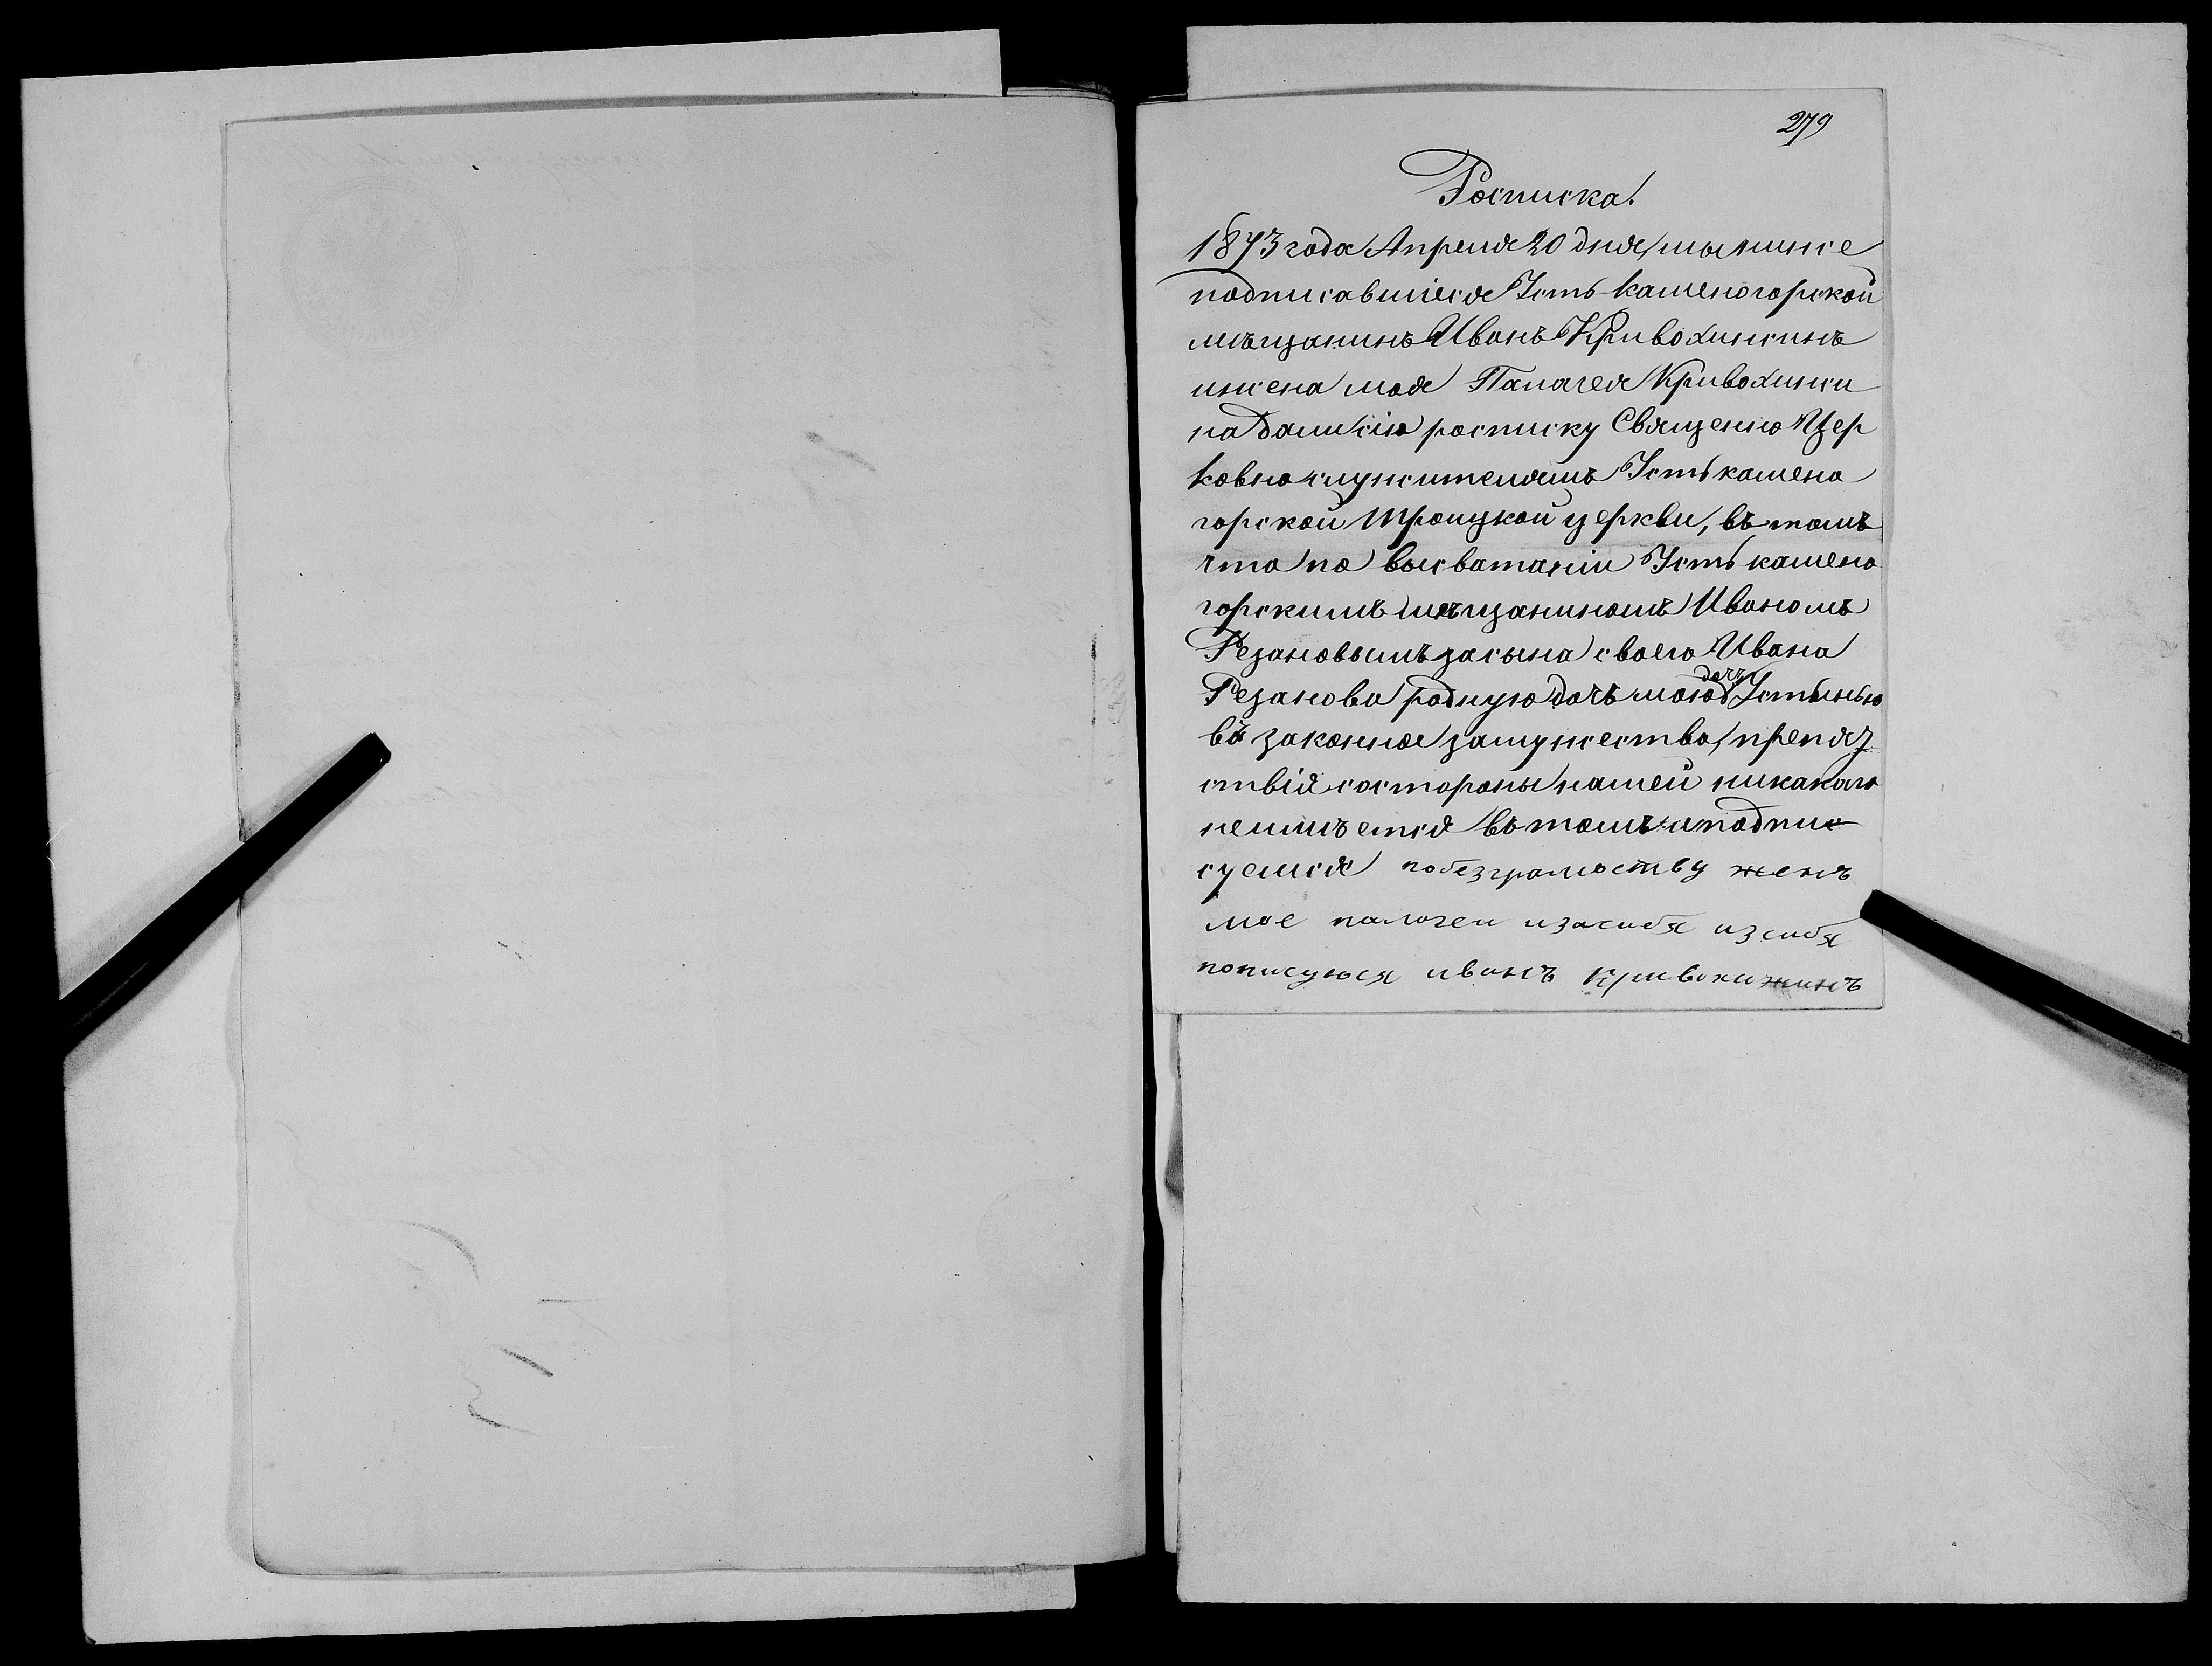 279
Росписка.
1873 года Апреля 20 дня, мы ниже
подписавшіеся Усть-Каменогорской
мѣщанинъ Иванъ Кривохижинъ
и жена моя Палагея Кривохижи
на дали сію росписку Священно Цер
ковно служителямъ Усть камено
горской Троицкой церкви, въ томъ
что по высватаніи Усть камено
горскимъ мѣщаниномъ Иваномъ
Резановымъ за сына своего Ивана
Резанова родную дочь мою дочь Устинью
въ законное замужество, препяз
ствія состороны нашей никакаго
неимѣется въ томъ и подпи
суемся побезграмоству женѣ
мое палогеи изасибя изсибя
пописуюся иванъ Кривохижинъ